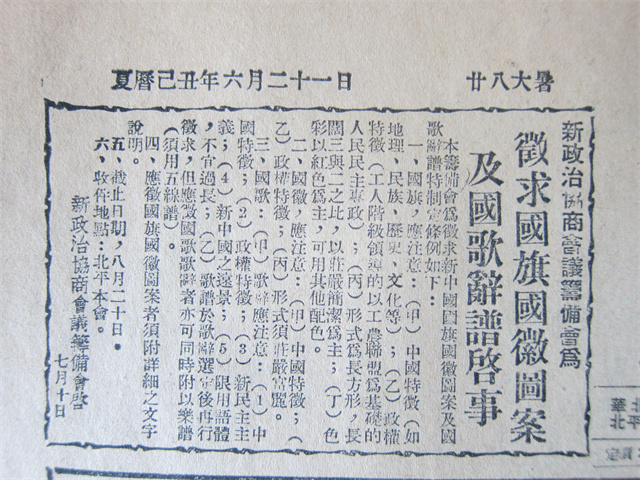 夏曆己丑年六月二十一日
廿八大暑
新政治協商會議籌備會爲
徵求國旗國徽圖案
及國歌辭譜啓事
本籌備會爲徵求新中國國旗國徽圖案及國
歌辭譜特制定條例如下：
一、國旗，應注意：（甲）中國特徵（如
地理、民族、歷史、文化等）；（乙）政權
特徵（工人階級領導的以工農聯盟爲基礎的
人民民主專政）；（丙）形式爲長方形，長
闊三與二之比，以莊嚴簡潔爲主；（丁）色
彩以紅色爲主，可用其他配色。
二、國徽，應注意：（甲）中國特徵；（
乙）政權特徵；（丙）形式須莊嚴富麗。
三、國歌：（甲）歌辭應注意：（1）中
國特徵；（2）政權特徵；（3）新民主主
義；（4）新中國之遠景；（5）限用語體
，不宜過長；（乙）歌譜於歌辭選定後再行
徵求，但應徵國歌歌辭者亦可同時附以樂譜
（須用五線譜）。
四、應徵國旗國徽圖案者須附詳細之文字
說明。
五、截止日期，八月二十日。
六、收件地點：北平本會。
新政治協商會議籌備會啓
七月十日
北平
華北